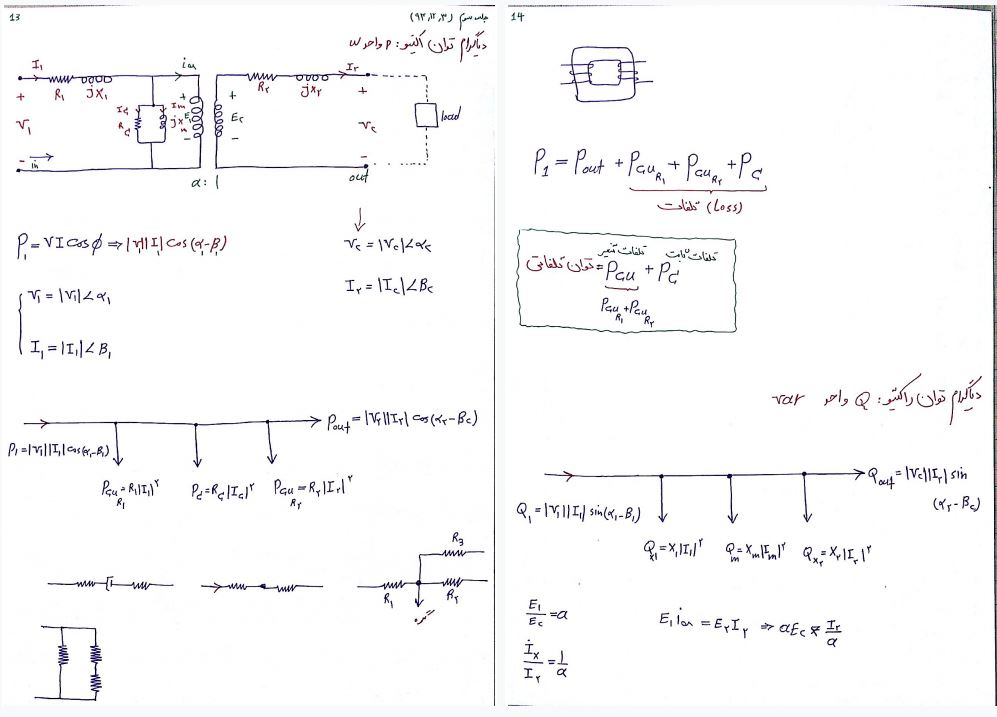 13
جلسه سوم (93,12,3)
دیاگرام توان اکتیو: P واحد W
I₁
R₁
jX₁
i_in
R₂
jX₂
I₂
load
+
V₁
-
I_c
R_c
I_m
jX_m
+
E₁
-
+
E₂
-
+
V₂
-
in
out
a : 1
P₁ = VI Cos φ ⇒ |V₁||I₁| Cos(α₁-β₁)
V₂ = |V₂|∠α₂
I₂ = |I₂|∠β₂
V₁ = |V₁|∠α₁
I₁ = |I₁|∠β₁
P_out = |V₂||I₂| cos(α₂-β₂)
P₁ = |V₁||I₁| cos(α₁-β₁)
P_cu R₁ = R₁|I₁|²
P_c = R_c|I_c|²
P_cu R₂ = R₂|I₂|²
R₃
R₁
R₂
گره
14
P₁ = P_out + P_cu R₁ + P_cu R₂ + P_c
تلفات (Loss)
تلفات متغیر
تلفات ثابت
توان تلفاتی = P_cu + P_c
P_cu R₁ + P_cu R₂
دیاگرام توان راکتیو: Q واحد var
Q_out = |V₂||I₂| sin
(α₂-β₂)
Q₁ = |V₁||I₁| sin(α₁-β₁)
Q_x₁ = X₁|I₁|²
Q_m = X_m|I_m|²
Q_x₂ = X₂|I₂|²
E₁/E₂ = a
E₁ i_in = E₂ I₂ ⇒ aE₂ * I₂/a
i_x/I₂ = 1/a